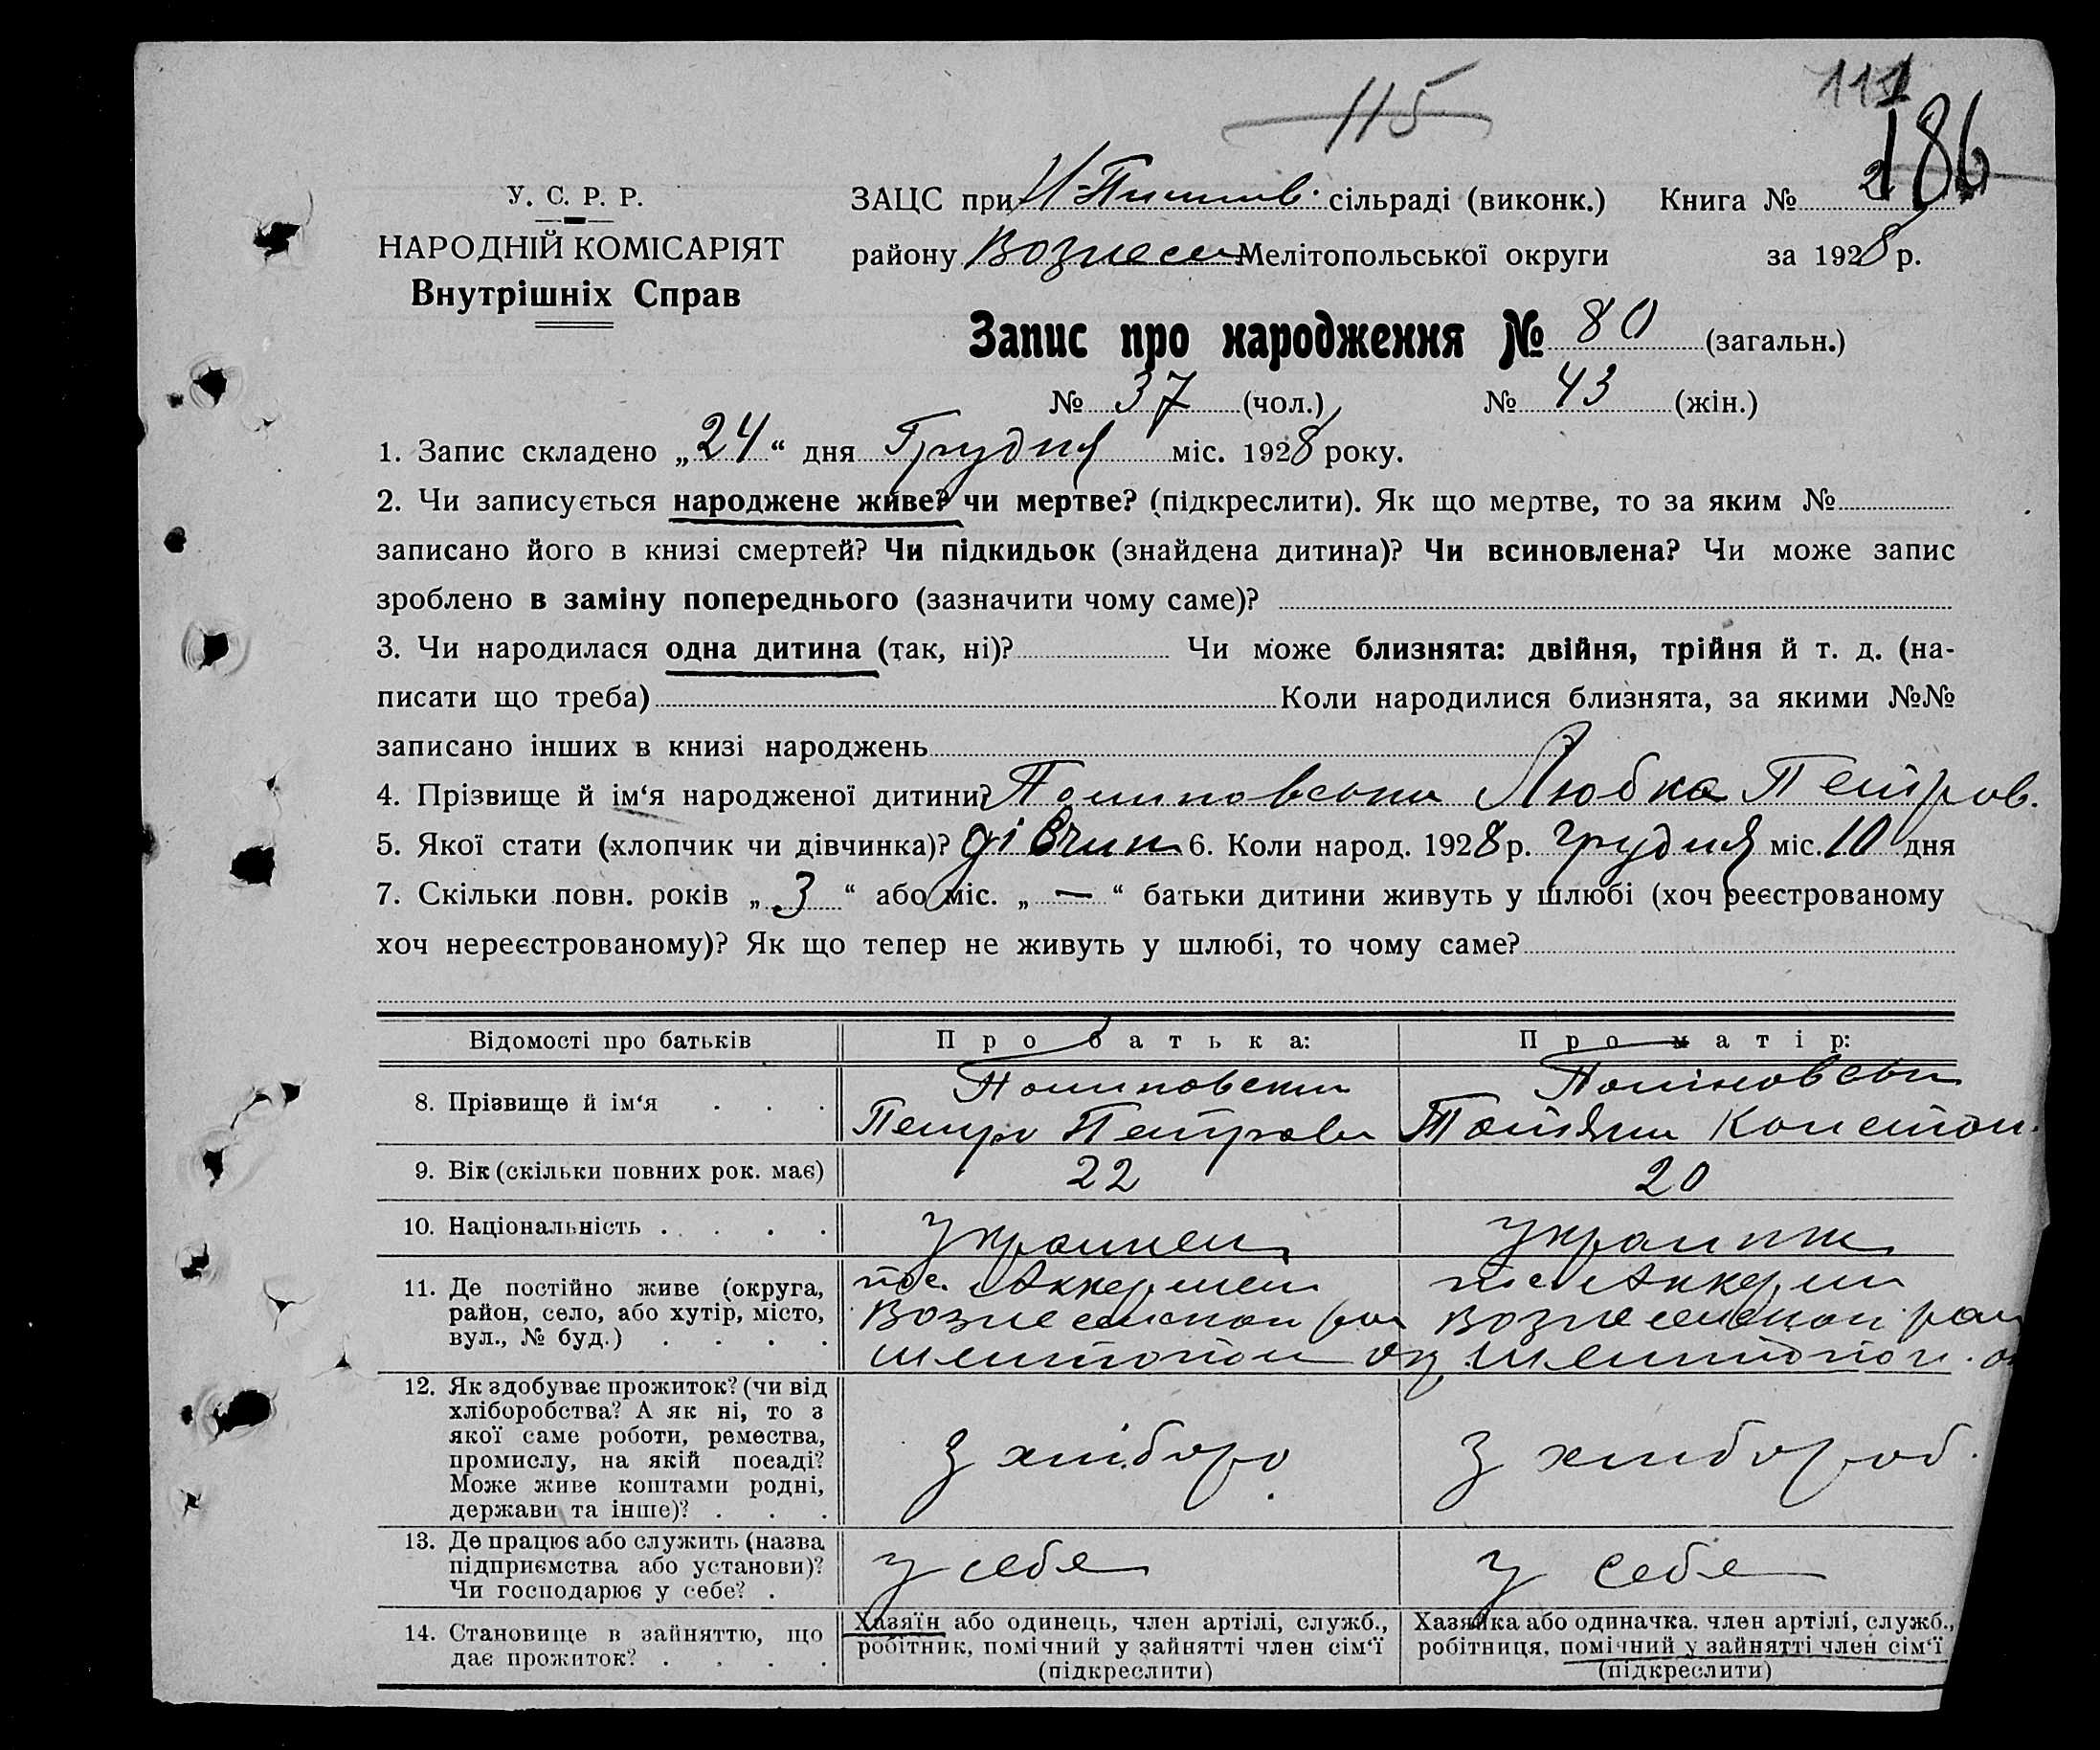 115
111
186
У. С. Р. Р.
НАРОДНІЙ КОМІСАРІЯТ
Внутрішніх Справ
ЗАЦС при сільраді (виконк.) Книга № 2
району Вознесен Мелітопольської округи за 1928 р.
Запис про народження № 80 (загальн.)
№ 37 (чол.) № 43 (жін.)
1. Запис складено „24“ дня Грудня міс. 1928 року.
2. Чи записується народжене живе? чи мертве? (підкреслити). Як що мертве, то за яким №
записано його в книзі смертей? Чи підкидьок (знайдена дитина)? Чи всиновлена? Чи може запис
зроблено в заміну попереднього (зазначити чому саме)?
3. Чи народилася одна дитина (так, ні)? Чи може близнята: двійня, трійня й т. д. (на-
писати що треба) Коли народилися близнята, за якими №№
записано інших в книзі народжень
4. Прізвище й ім‘я народженої дитини? Любка Петров.
5. Якої стати (хлопчик чи дівчинка)? дівчин 6. Коли народ. 1928 р. грудня міс. 10 дня
7. Скільки повн. років „3“ або міс. „—“ батьки дитини живуть у шлюбі (хоч реєстрованому
хоч нереєстрованому)? Як що тепер не живуть у шлюбі, то чому саме?
Відомості про батьків Про батька: Про матір:
8. Прізвище й ім‘я . . .
Петро Петрови Тотяни Констан.
9. Вік (скільки повних рок. має) 22 20
10. Національність . . . . украинец украинк
11. Де постійно живе (округа,
район, село, або хутір, місто,
вул., № буд.) . . . .
пос. Аккермен
Вознесенскои рай
Мелитопол ок
пос Аккерм
Вознесенскои рай
Мелитопол. о
12. Як здобуває прожиток? (чи від
хліборобства? А як ні, то з
якої саме роботи, ремества,
промислу, на якій посаді?
Може живе коштами родні,
держави та інше)? . . .
З хліборо. З хлибороб.
13. Де працює або служить (назва
підприємства або установи)?
Чи господарює у себе? .
у себе у себе
14. Становище в зайняттю, що
дає прожиток? . . . .
Хазяїн або одинець, член артілі, служб.,
робітник, помічний у зайнятті член сім‘ї
(підкреслити)
Хазяйка або одиначка. член артілі, служб.,
робітниця, помічний у зайнятті член сім‘ї
(підкреслити)